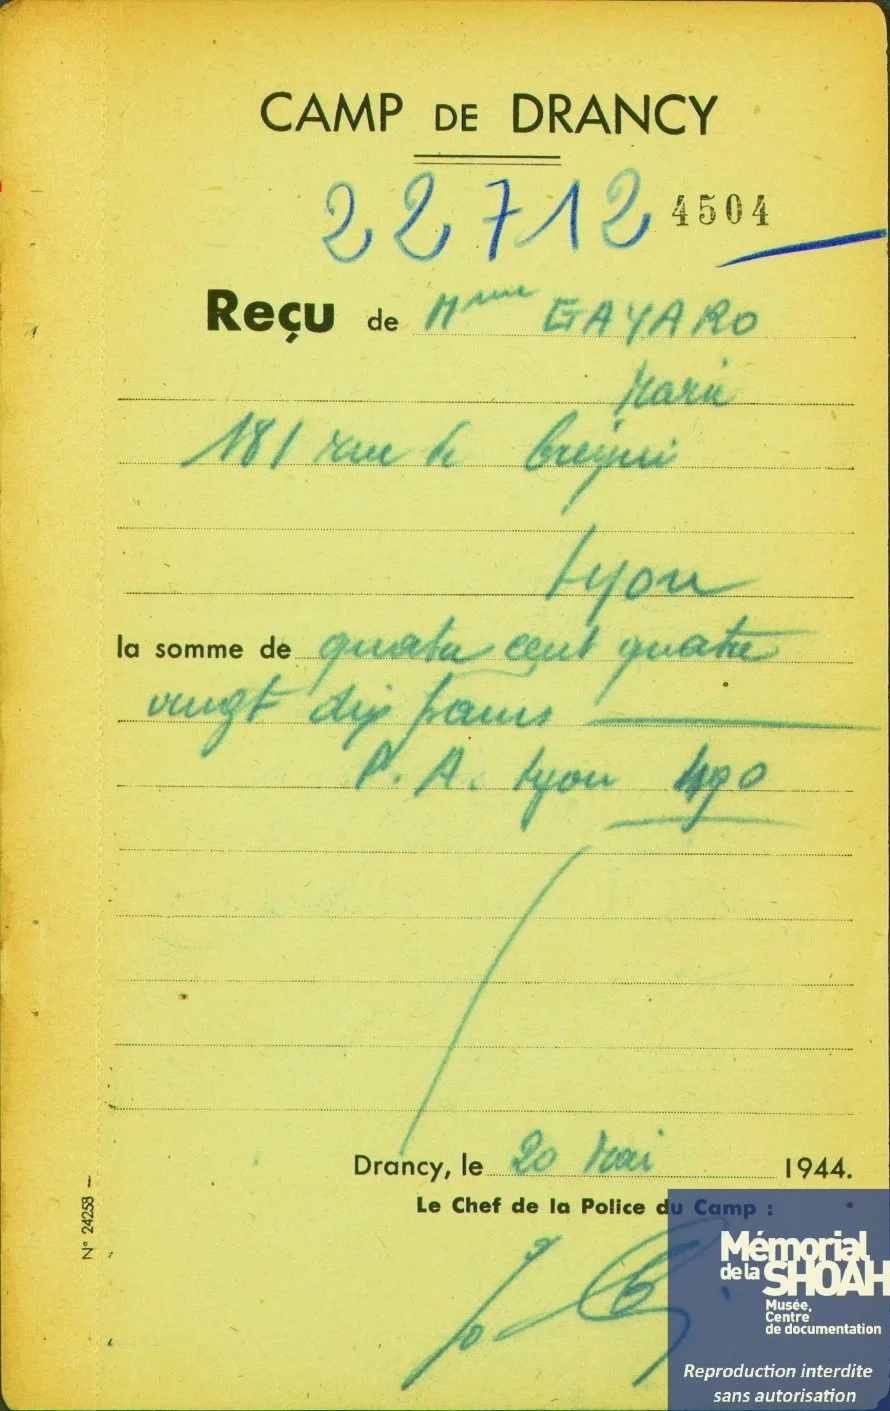 CAMP DE DRANCY
22712 4504
Reçu de Mme GAYARO
Marie
181 rue de Créqui
Lyon
la somme de quatre cent quatre
vingt dix francs
P. A. Lyon 490
Drancy, le 20 Mai 1944.
Le Chef de la Police du Camp :
N° 24258
Mémorial
de la SHOAH
Musée,
Centre
de documentation
Reproduction interdite
sans autorisation